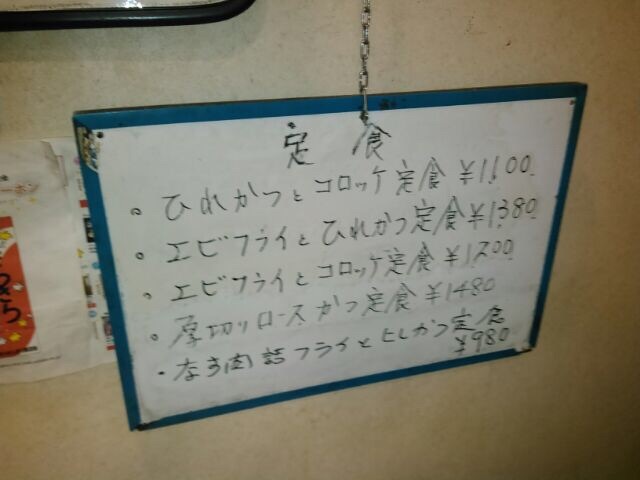 定食
・ひれかつとコロッケ定食 ¥1.100
・エビフライとひれかつ定食 ¥1.380
・エビフライとコロッケ定食 ¥1.200
・厚切りロースかつ定食 ¥1480
・なす肉詰フライとヒレかつ定食
¥980